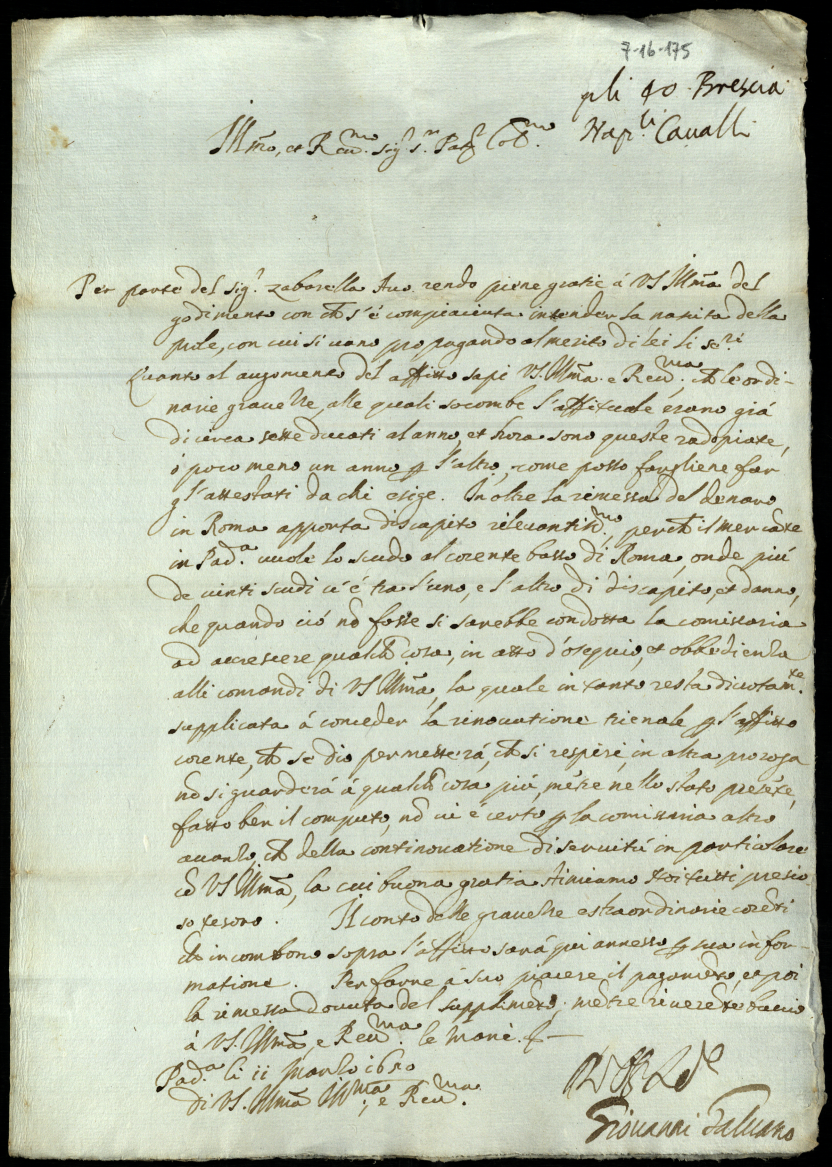 7-16-175
pli 40. Brescia
Nap.li Cavalli
Ill.mo, et Rev.mo sig.r s.r Pat.
Per parte del sig.r Zabarella Avo. rendo piene gratie á VS Ill.ma del
godimento con ch̃ s'é compiaciuta intender la nascita della
pule, con cui si vano propagando al merito di lei li se.ri
Quanto al augomento del affitto sapi VS. Ill.ma e Rev.ma, ch̃ le ordi-
narie gravezze, alle quali socombe l'affituale érano giá
di circa sette ducati al anno, et hora sono queste radopiate,
ó poco meno un anno ꝑ l'altro, come posso fargliene far
ꝑ l'attestati da chi esige. In oltre la rimessa del denaro
in Roma apporta discapito rilevantiss.mo, perch̃ il mercãte
in Pad.a vuole lo scudo al corente basso di Roma, onde piú
de vinti scudi vi é tra l'uno, e l'altro di discapito, et danno,
che quando ció nõ fosse si sarebbe condotta la comissaria
ad accrescere qualch̃ cosa, in atto d'osequio, et obbedienza
alli comandi di VS Ill.ma, la quale in tanto resta divotam.te
supplicata á conceder la rinovatione trienale ꝑ l'affitto
corente, ch̃ se dio permetterá, ch̃ si respiri, in altra proroga
nõ si guarderá á qualch̃ cosa piú, mẽtre nello stato presẽte,
fatto ben il computo, nõ vi é certo ꝑ la comissaria altro
avanzo, ch̃ della continovatione di servitú in particolare
cõ VS Ill.ma, la cui buona gratia stimiamo noi tutti pretio-
so tesoro. Il conto delle gravezze estraordinarie corẽti
ch̃ incombono sopra l'affitto sará qui annesso ꝑ sua infor-
matione. Per farne á suo piacere il pagamẽto, e poi
la rimessa dovuta del supplimẽto; mẽtre riverẽte bacio
á VS. Ill.ma, e Rev.ma le mani.
Pad.a li 11 Marzo 1650
di VS. Ill.ma Ill.ma, e Rev.ma
Giovanni Galvano